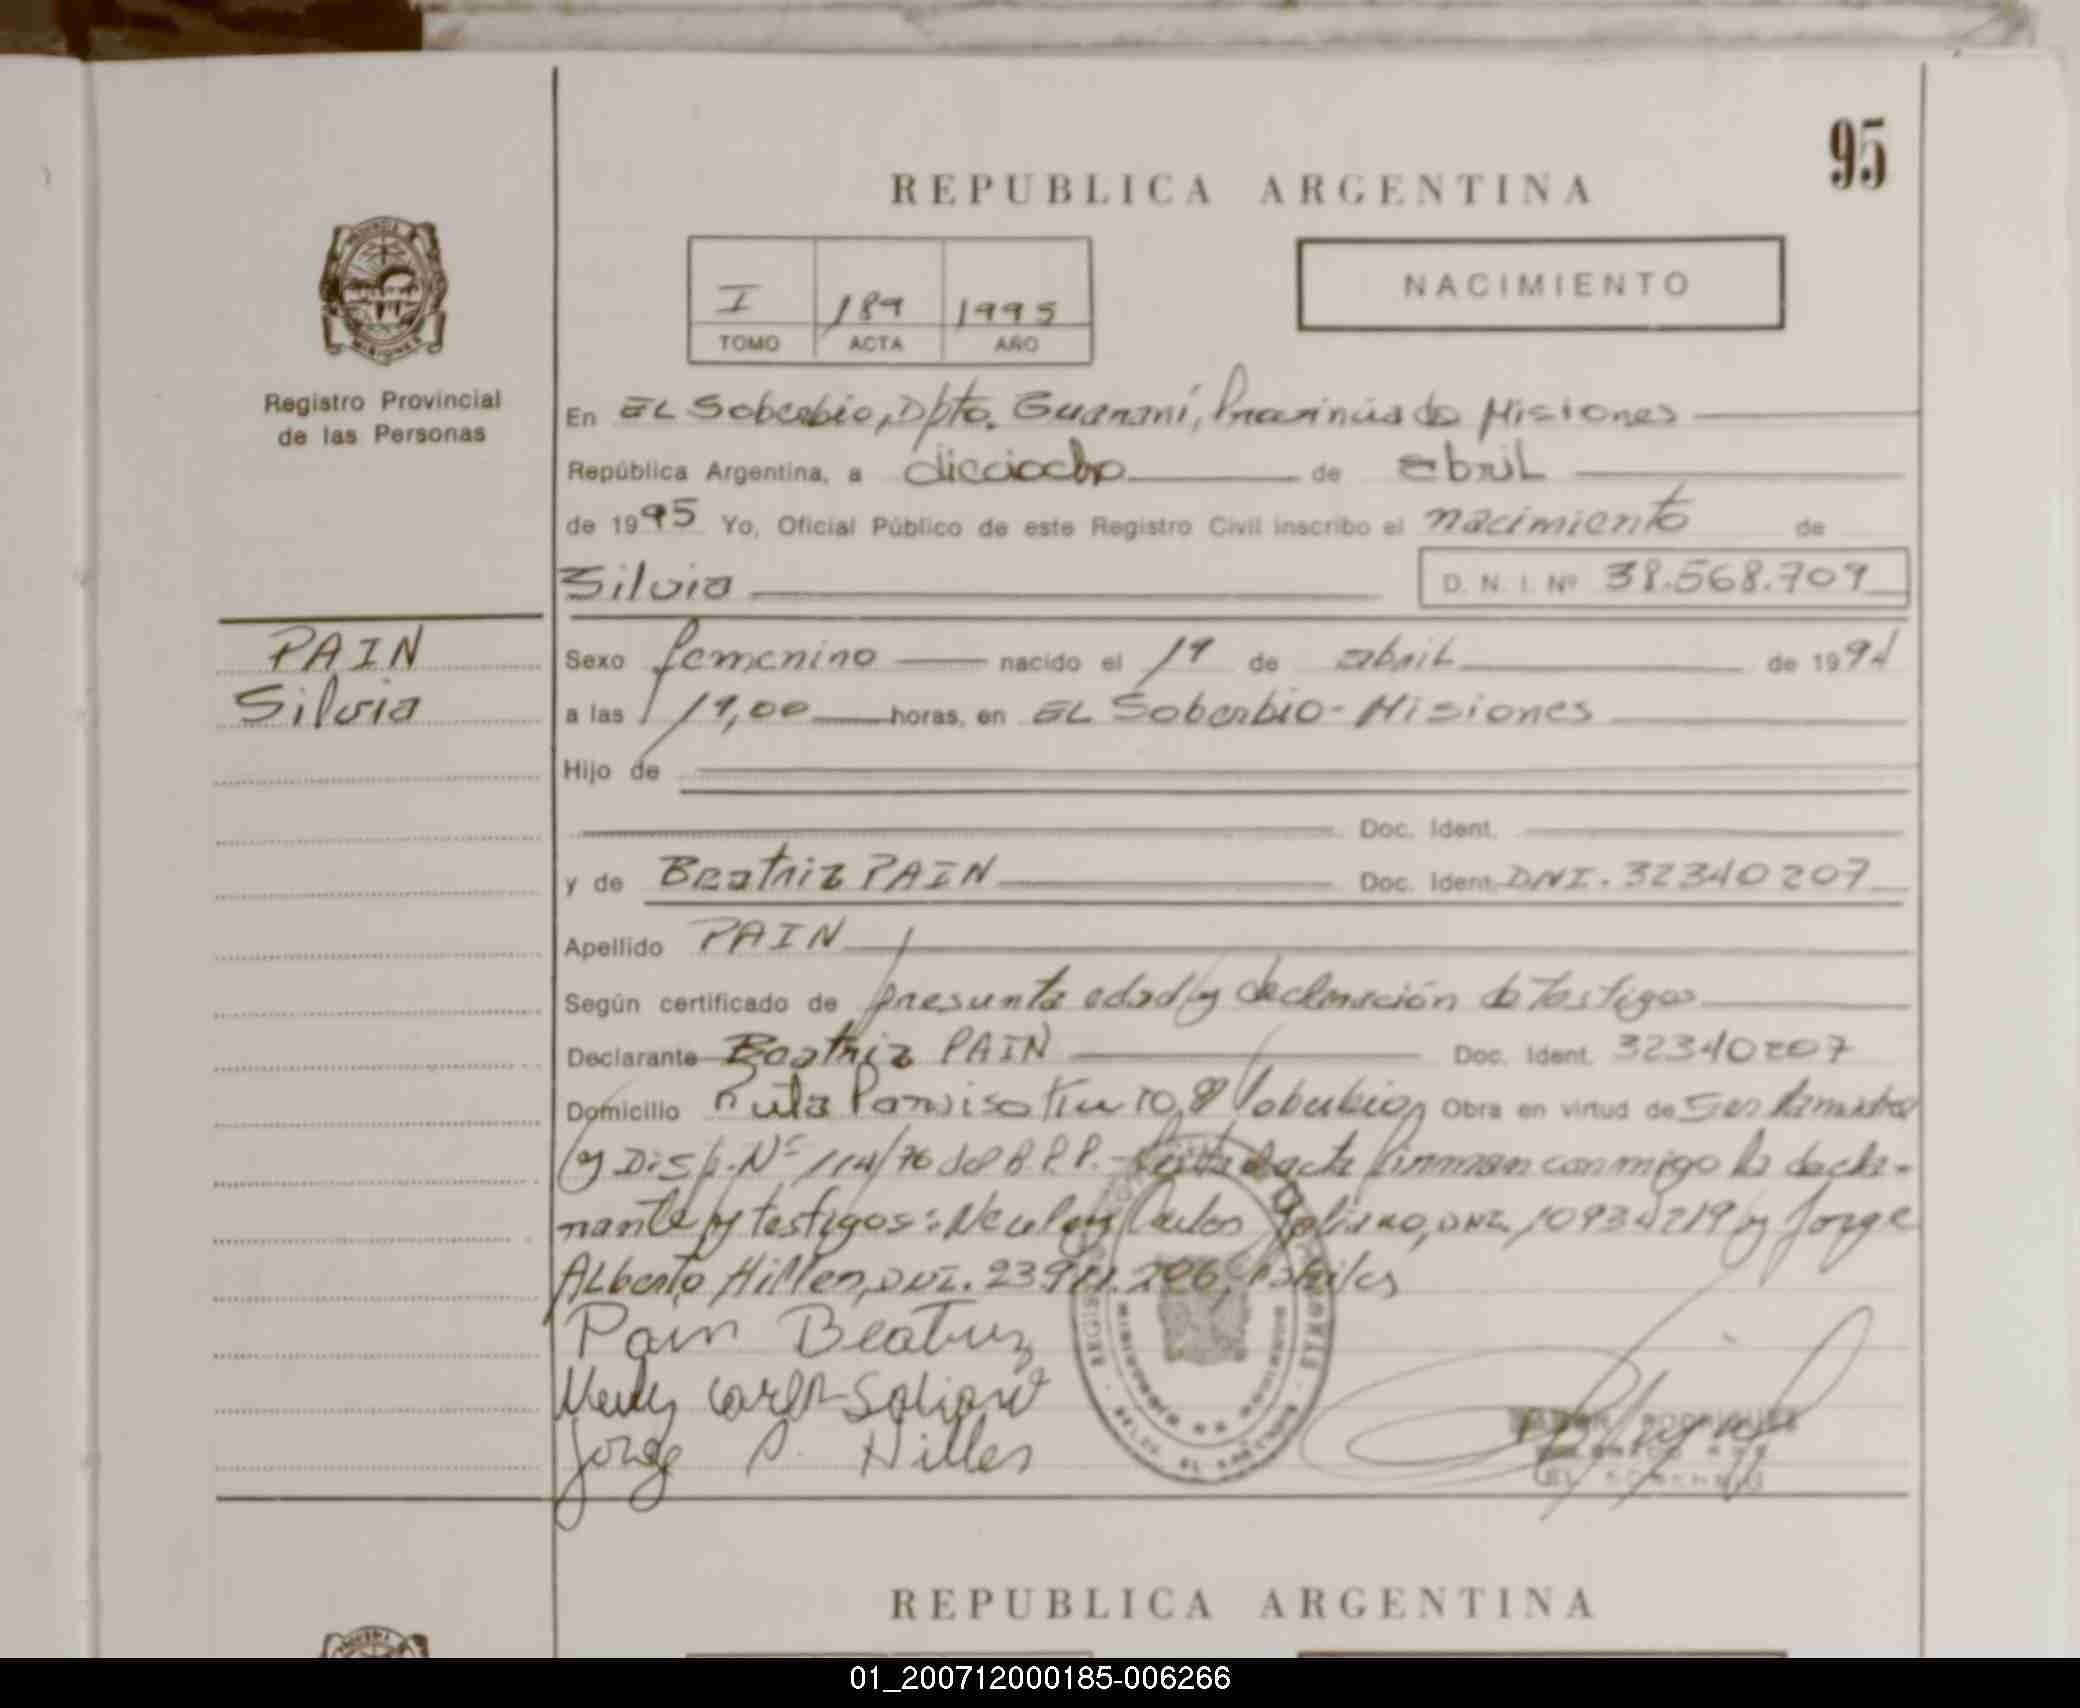 95
REPUBLICA ARGENTINA
NACIMIENTO
I 189 1995
TOMO ACTA AÑO
Registro Provincial
de las Personas
En EL Soberbio, Dpto. Guaraní, Provincia de Misiones
República Argentina, a dieciocho de abril
de 1995 Yo, Oficial Público de este Registro Civil inscribo el nacimiento de
Silvia D. N. I. Nº 38.568.709
PAIN
Silvia
Sexo femenino nacido el 19 de abril de 1994
a las 19,00 horas, en EL Soberbio - Misiones
Hijo de
Doc. Ident.
y de Beatriz PAIN Doc. Ident. DNI. 32340207
Apellido PAIN
Según certificado de presunta edad y declaración de Testigos
Declarante Beatriz PAIN Doc. Ident. 32340207
Domicilio Ruta Paraiso Km 10, Soberbio, Obra en virtud de
y Disp. Nº 114/76 del R.P.P. - acta firman conmigo la decla-
rante y testigos: Carlos DNI. 10934219 y Jorge
Alberto Hilles, DNI.
Pain Beatriz
Carlos
Jorge A. Hilles
RODRIGUEZ
EL SOBERBIO
REPUBLICA ARGENTINA
01_200712000185-006266